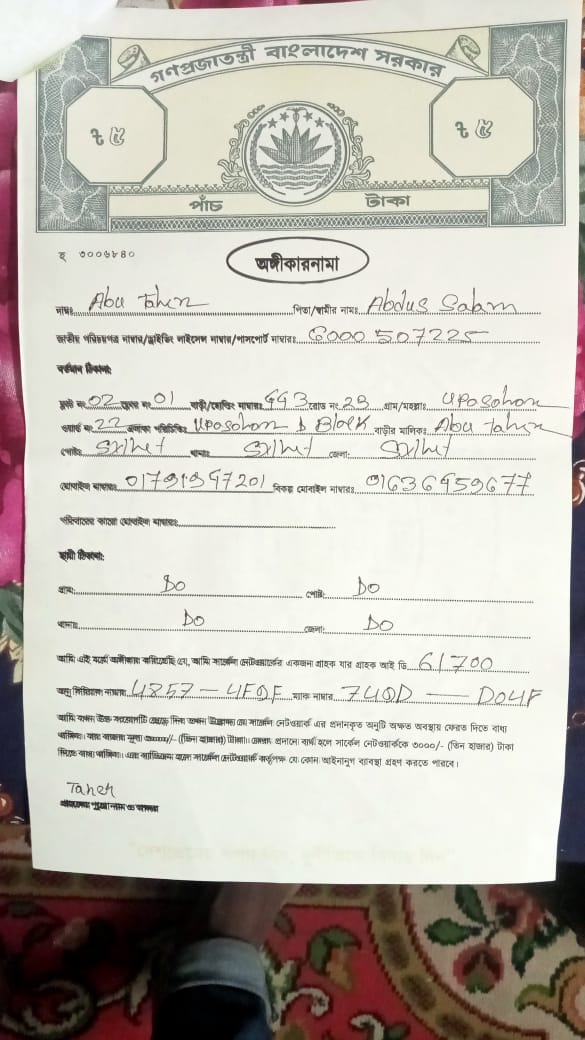 গণপ্রজাতন্ত্রী বাংলাদেশ সরকার
৳ ৫ ৳ ৫
পাঁচ টাকা
হ ৩০০৬৮৪০
অঙ্গীকারনামা
নামঃ Abu Taher পিতা/স্বামীর নামঃ Abdus Salam
জাতীয় পরিচয়পত্র নাম্বার/ড্রাইভিং লাইসেন্স নাম্বার/পাসপোর্ট নাম্বারঃ 6000507225
বর্তমান ঠিকানা:
02 01 বাড়ী/হোল্ডিং নাম্বারঃ 443 রোড নং 23 গ্রাম/মহল্লাঃ Uposohor
ওয়ার্ড নং 22 এলাকা পরিচিতিঃ Uposohor D Block বাড়ীর মালিকঃ Abu Taher
পোষ্টঃ Sylhet থানাঃ Sylhet জেলা: Sylhet
মোবাইল নাম্বারঃ 01791947201 বিকল্প মোবাইল নাম্বারঃ 01636959677
পরিবারের কারো মোবাইল নাম্বারঃ
স্থায়ী ঠিকানা:
গ্রামঃ Do পোষ্টঃ Do
থানাঃ Do জেলা: Do
আমি এই মর্মে অঙ্গীকার করিতেছি যে, আমি সার্কেল নেটওয়ার্কের একজন গ্রাহক যার গ্রাহক আই ডি 61700
অনু সিরিয়াল নাম্বার 4857-4F9F ম্যাক নাম্বার 74QD — D04F
আমি যখন উক্ত সংযোগটি ছেড়ে দিব তখন সার্কেল নেটওয়ার্ক এর প্রদানকৃত অনুটি অক্ষত অবস্থায় ফেরত দিতে বাধ্য
থাকিব। যার বাজার মূল্য ৩০০০/- (তিন হাজার) টাকা। ফেরত প্রদানে ব্যর্থ হলে সার্কেল নেটওয়ার্ককে ৩০০০/- (তিন হাজার) টাকা
দিতে বাধ্য থাকিব। সার্কেল নেটওয়ার্ক কর্তৃপক্ষ যে কোন আইনানুগ ব্যবস্থা গ্রহণ করতে পারবে।
Taher
গ্রাহকের পূর্ণ নাম ও স্বাক্ষর